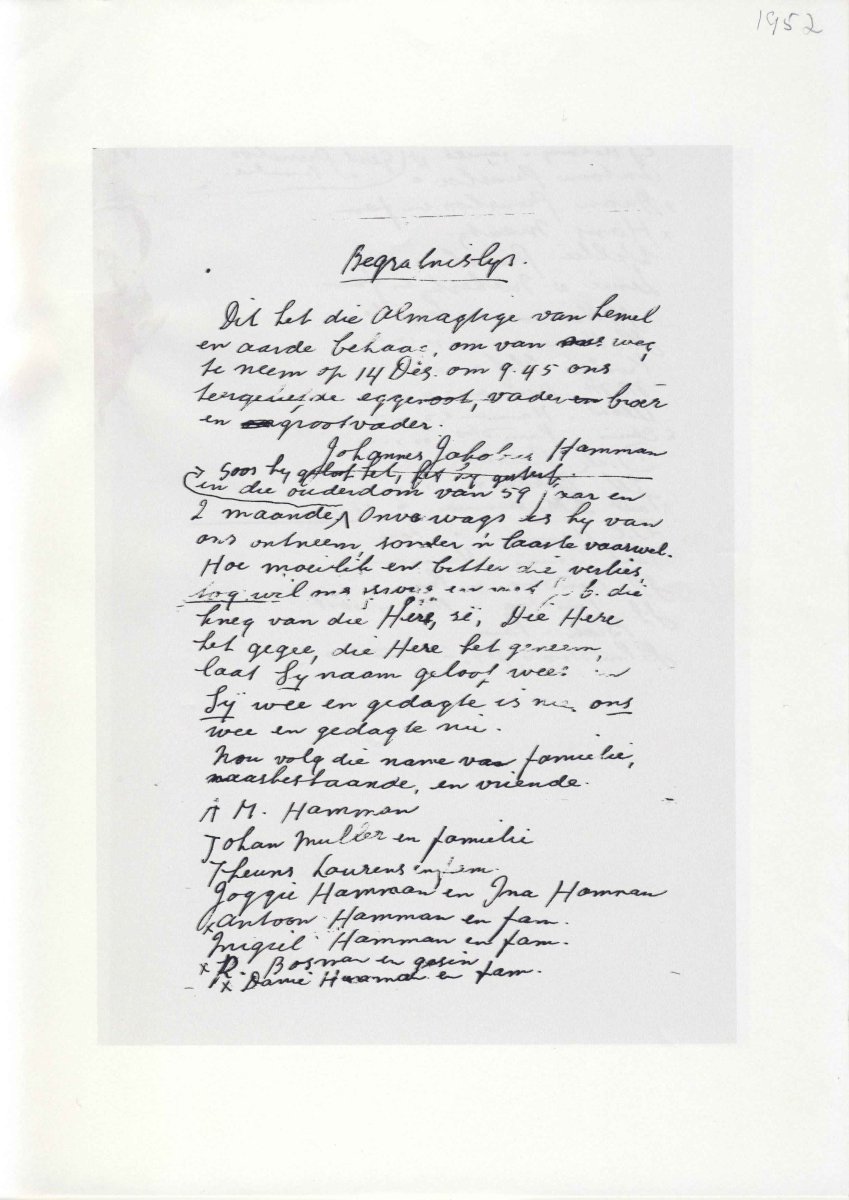 1952
Begrafnislys.
Dit het die Almagtige van hemel
en aarde behaag, om van ons weg
te neem op 14 Des. om 9.45 ons
teergeliefde eggenoot, vader en broer
en grootvader.
Johannes Jakobus Hamman
soos hy geloof het, het hy gesterf.
in die ouderdom van 59 jaar en
2 maande, Onverwags is hy van
ons ontneem, sonder 'n laaste vaarwel.
Hoe moeilik en bitter die verlies,
tog wil ons en met Job. die
kneg van die Here, sê, Die Here
het gegee, die Here het geneem,
laat Sy naam geloof wees
Sy weë en gedagte is nie ons
weë en gedagte nie.
Nou volg die name van familie,
naasbestaande, en vriende.
A M. Hamman
Johan Muller en familie
Theuns Lourens en fam.
Joggie Hamman en Ina Hamman
x Antoon Hamman en fam.
Migiel Hamman en fam.
x R. Bosman en gesin
x Danie Hamman en fam.